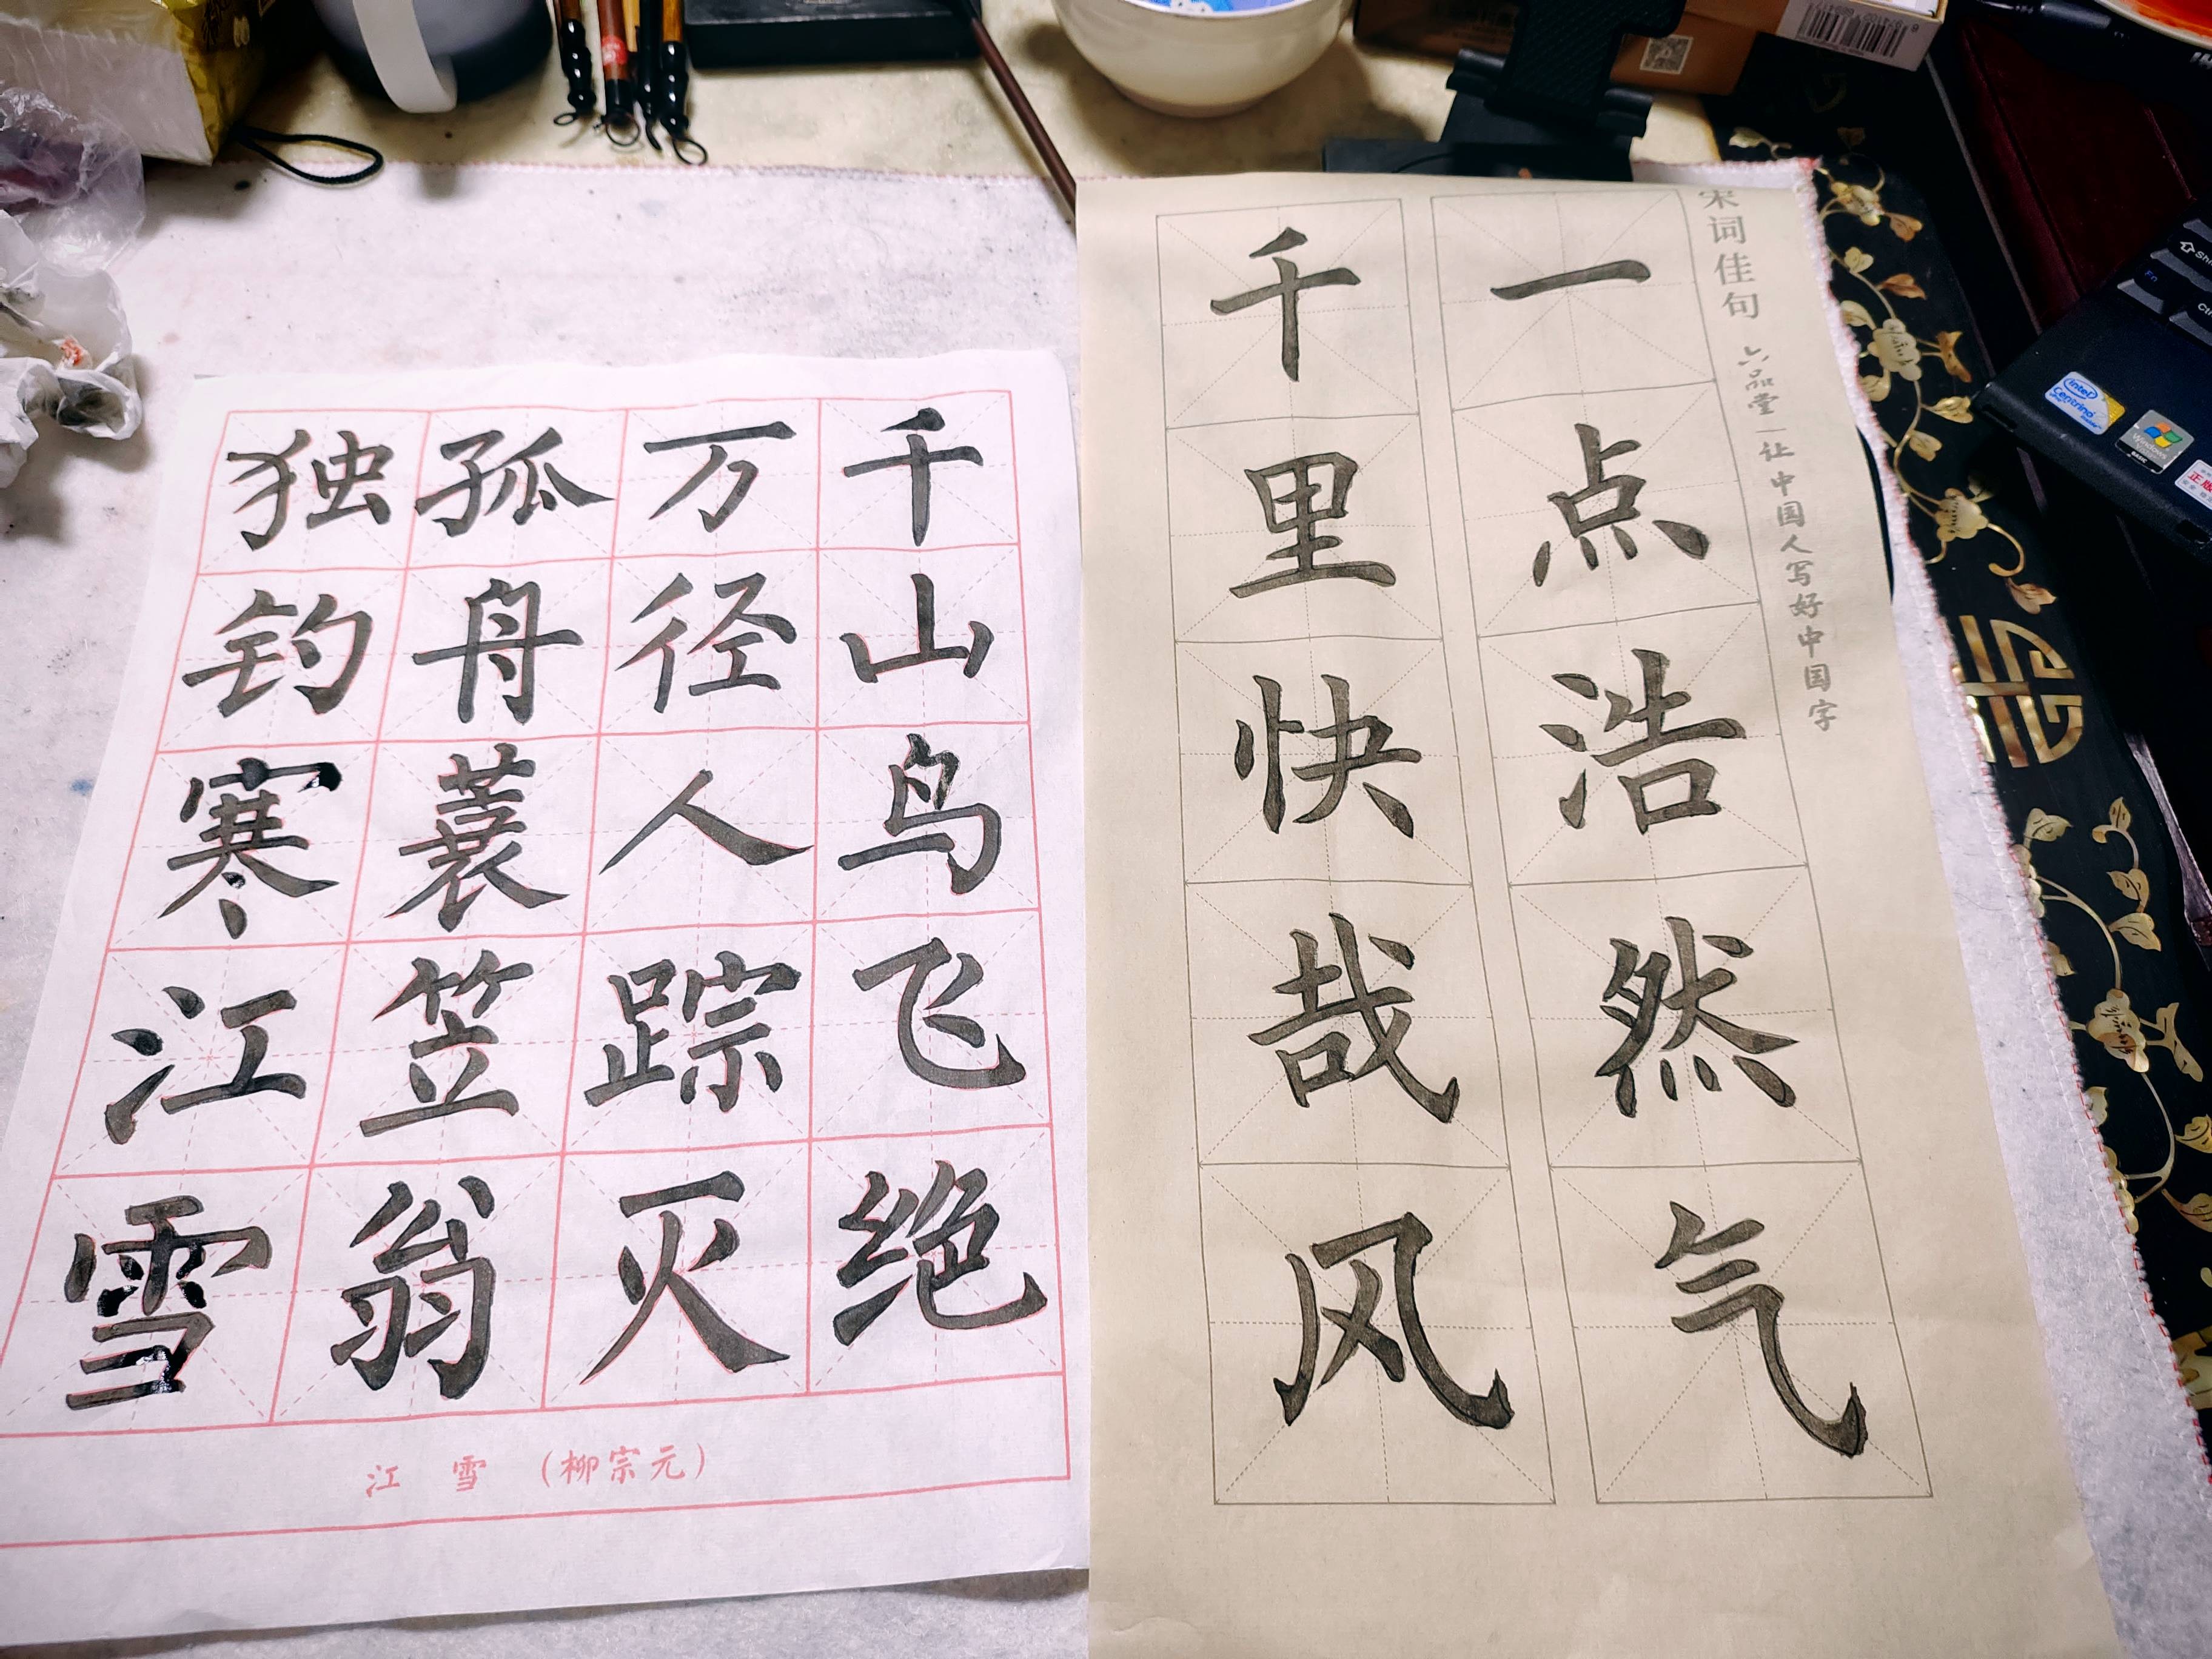 千山鸟飞绝
万径人踪灭
孤舟蓑笠翁
独钓寒江雪
江雪（柳宗元）
宋词佳句 六品堂｜让中国人写好中国字
一点浩然气
千里快哉风
intel
Centrino
Windows
正版
Shift
Fn
Ctrl